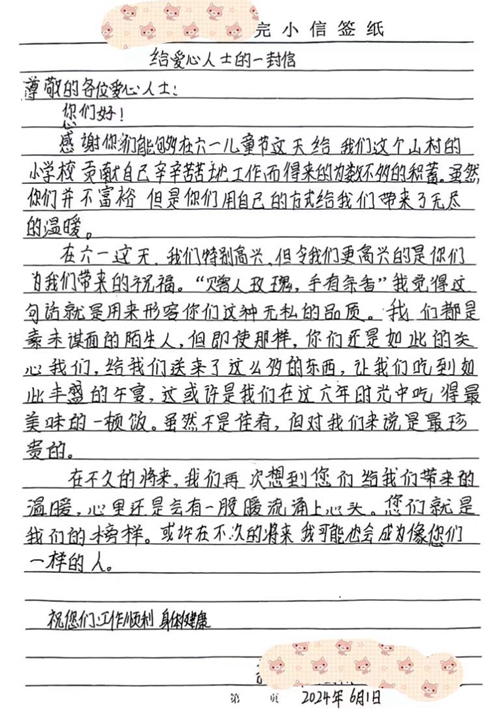 完小信签纸
给爱心人士的一封信
尊敬的各位爱心人士:
您们好!
感谢你们能够在六一儿童节这天给我们这个山村的
小学校贡献自己辛辛苦苦地工作而得来的为数不多的积蓄。虽然
你们并不富裕 但是你们用自己的方式给我们带来了无尽
的温暖。
在六一这天,我们特别高兴,但令我们更高兴的是你们
为我们带来的祝福。“赠人玫瑰,手有余香”我觉得这
句话就是用来形容你们这种无私的品质。我们都是
素未谋面的陌生人,但即使那样,你们还是如此的关
心我们,给我们送来了这么多的东西,让我们吃到如
此丰盛的午宴,这或许是我们在这六年时光中吃得最
美味的一顿饭。虽然不是佳肴,但对我们来说是最珍
贵的。
在不久的将来,我们再次想到您们给我们带来的
温暖,心里还是会有一股暖流涌上心头。您们就是
我们的榜样。或许在不久的将来 我可能也会成为像您们
一样的人。
祝您们:工作顺利 身体健康
第 页 2024年6月1日